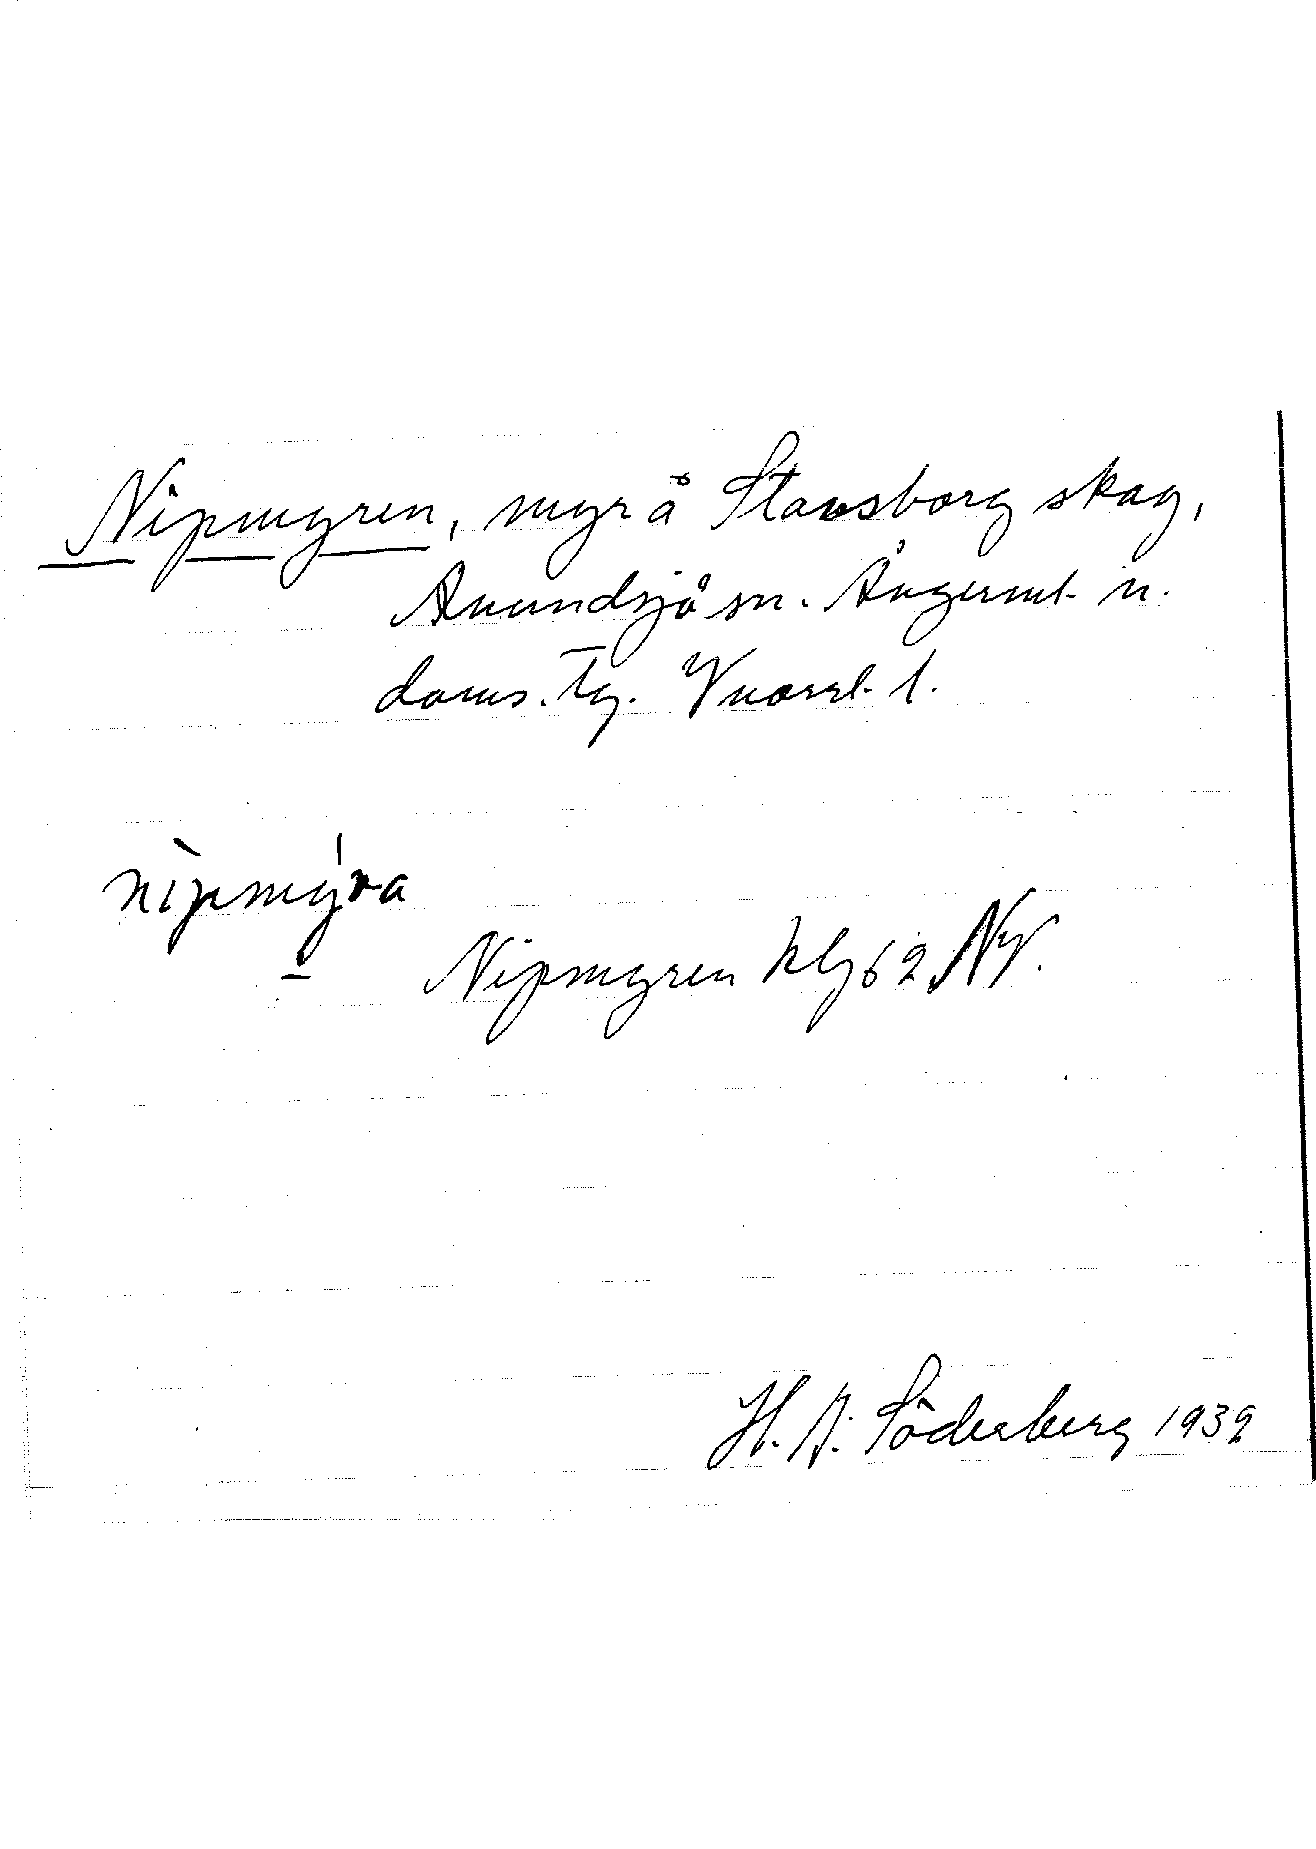 Nipmyren, myr å Stavsborg skog,
Anundsjö sn. Ångerml. n.
doms. tg. Vnorrl. l.
nìpmýra
Nipmyren hlg 62 NV.
H. A. Söderberg 1939